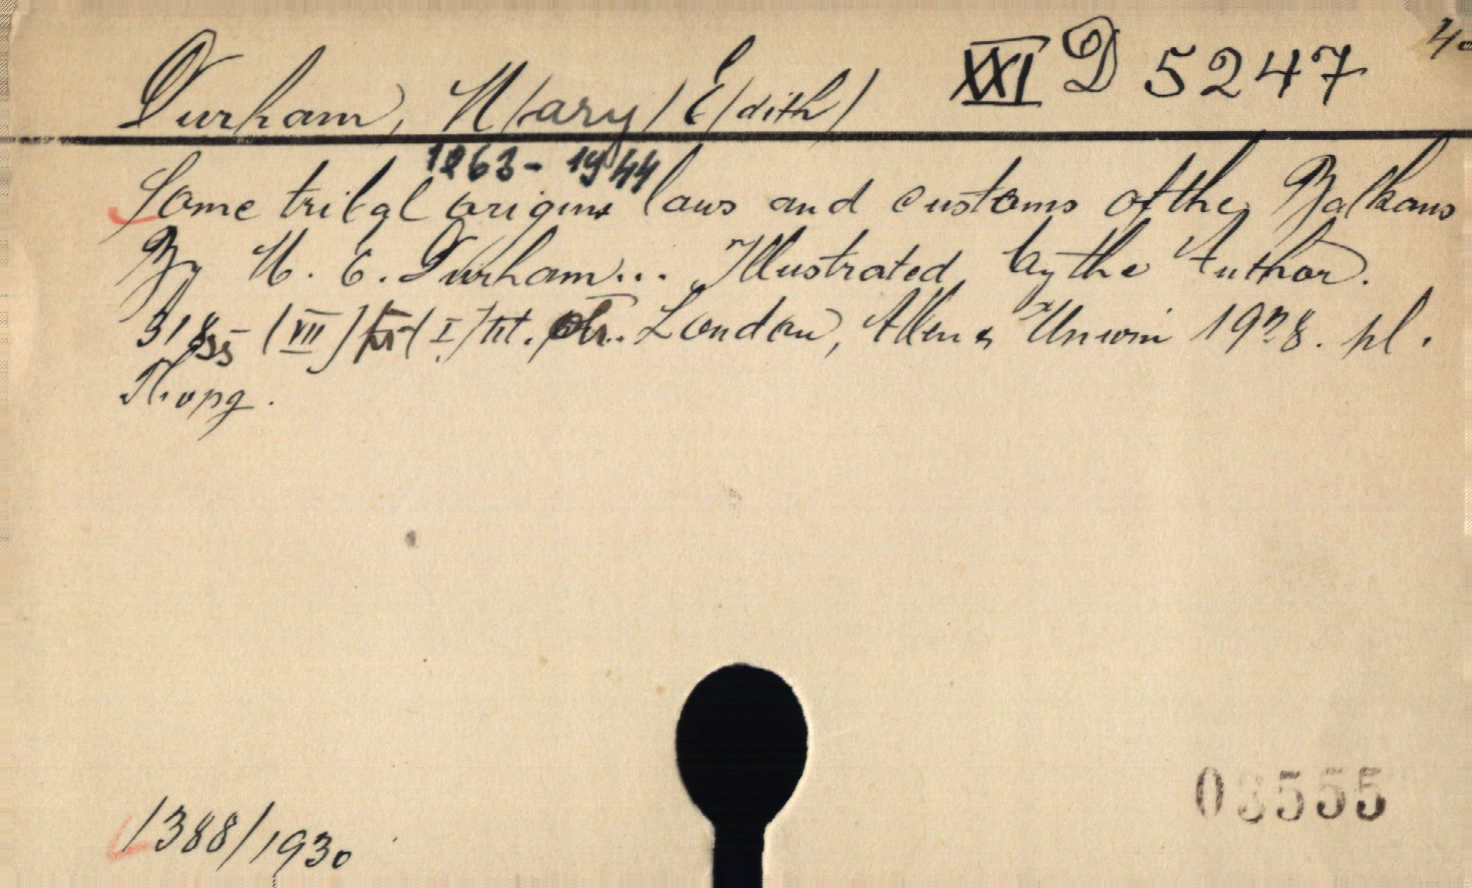 Durham, M(ary) E(dith) XXI D 5247
1863-1944
Some tribal origins laws and customs of the Balkans
By M. E. Durham... Illustrated by the Author.
London, Allen & Unwin 1928. pl.
1388/1930
03555